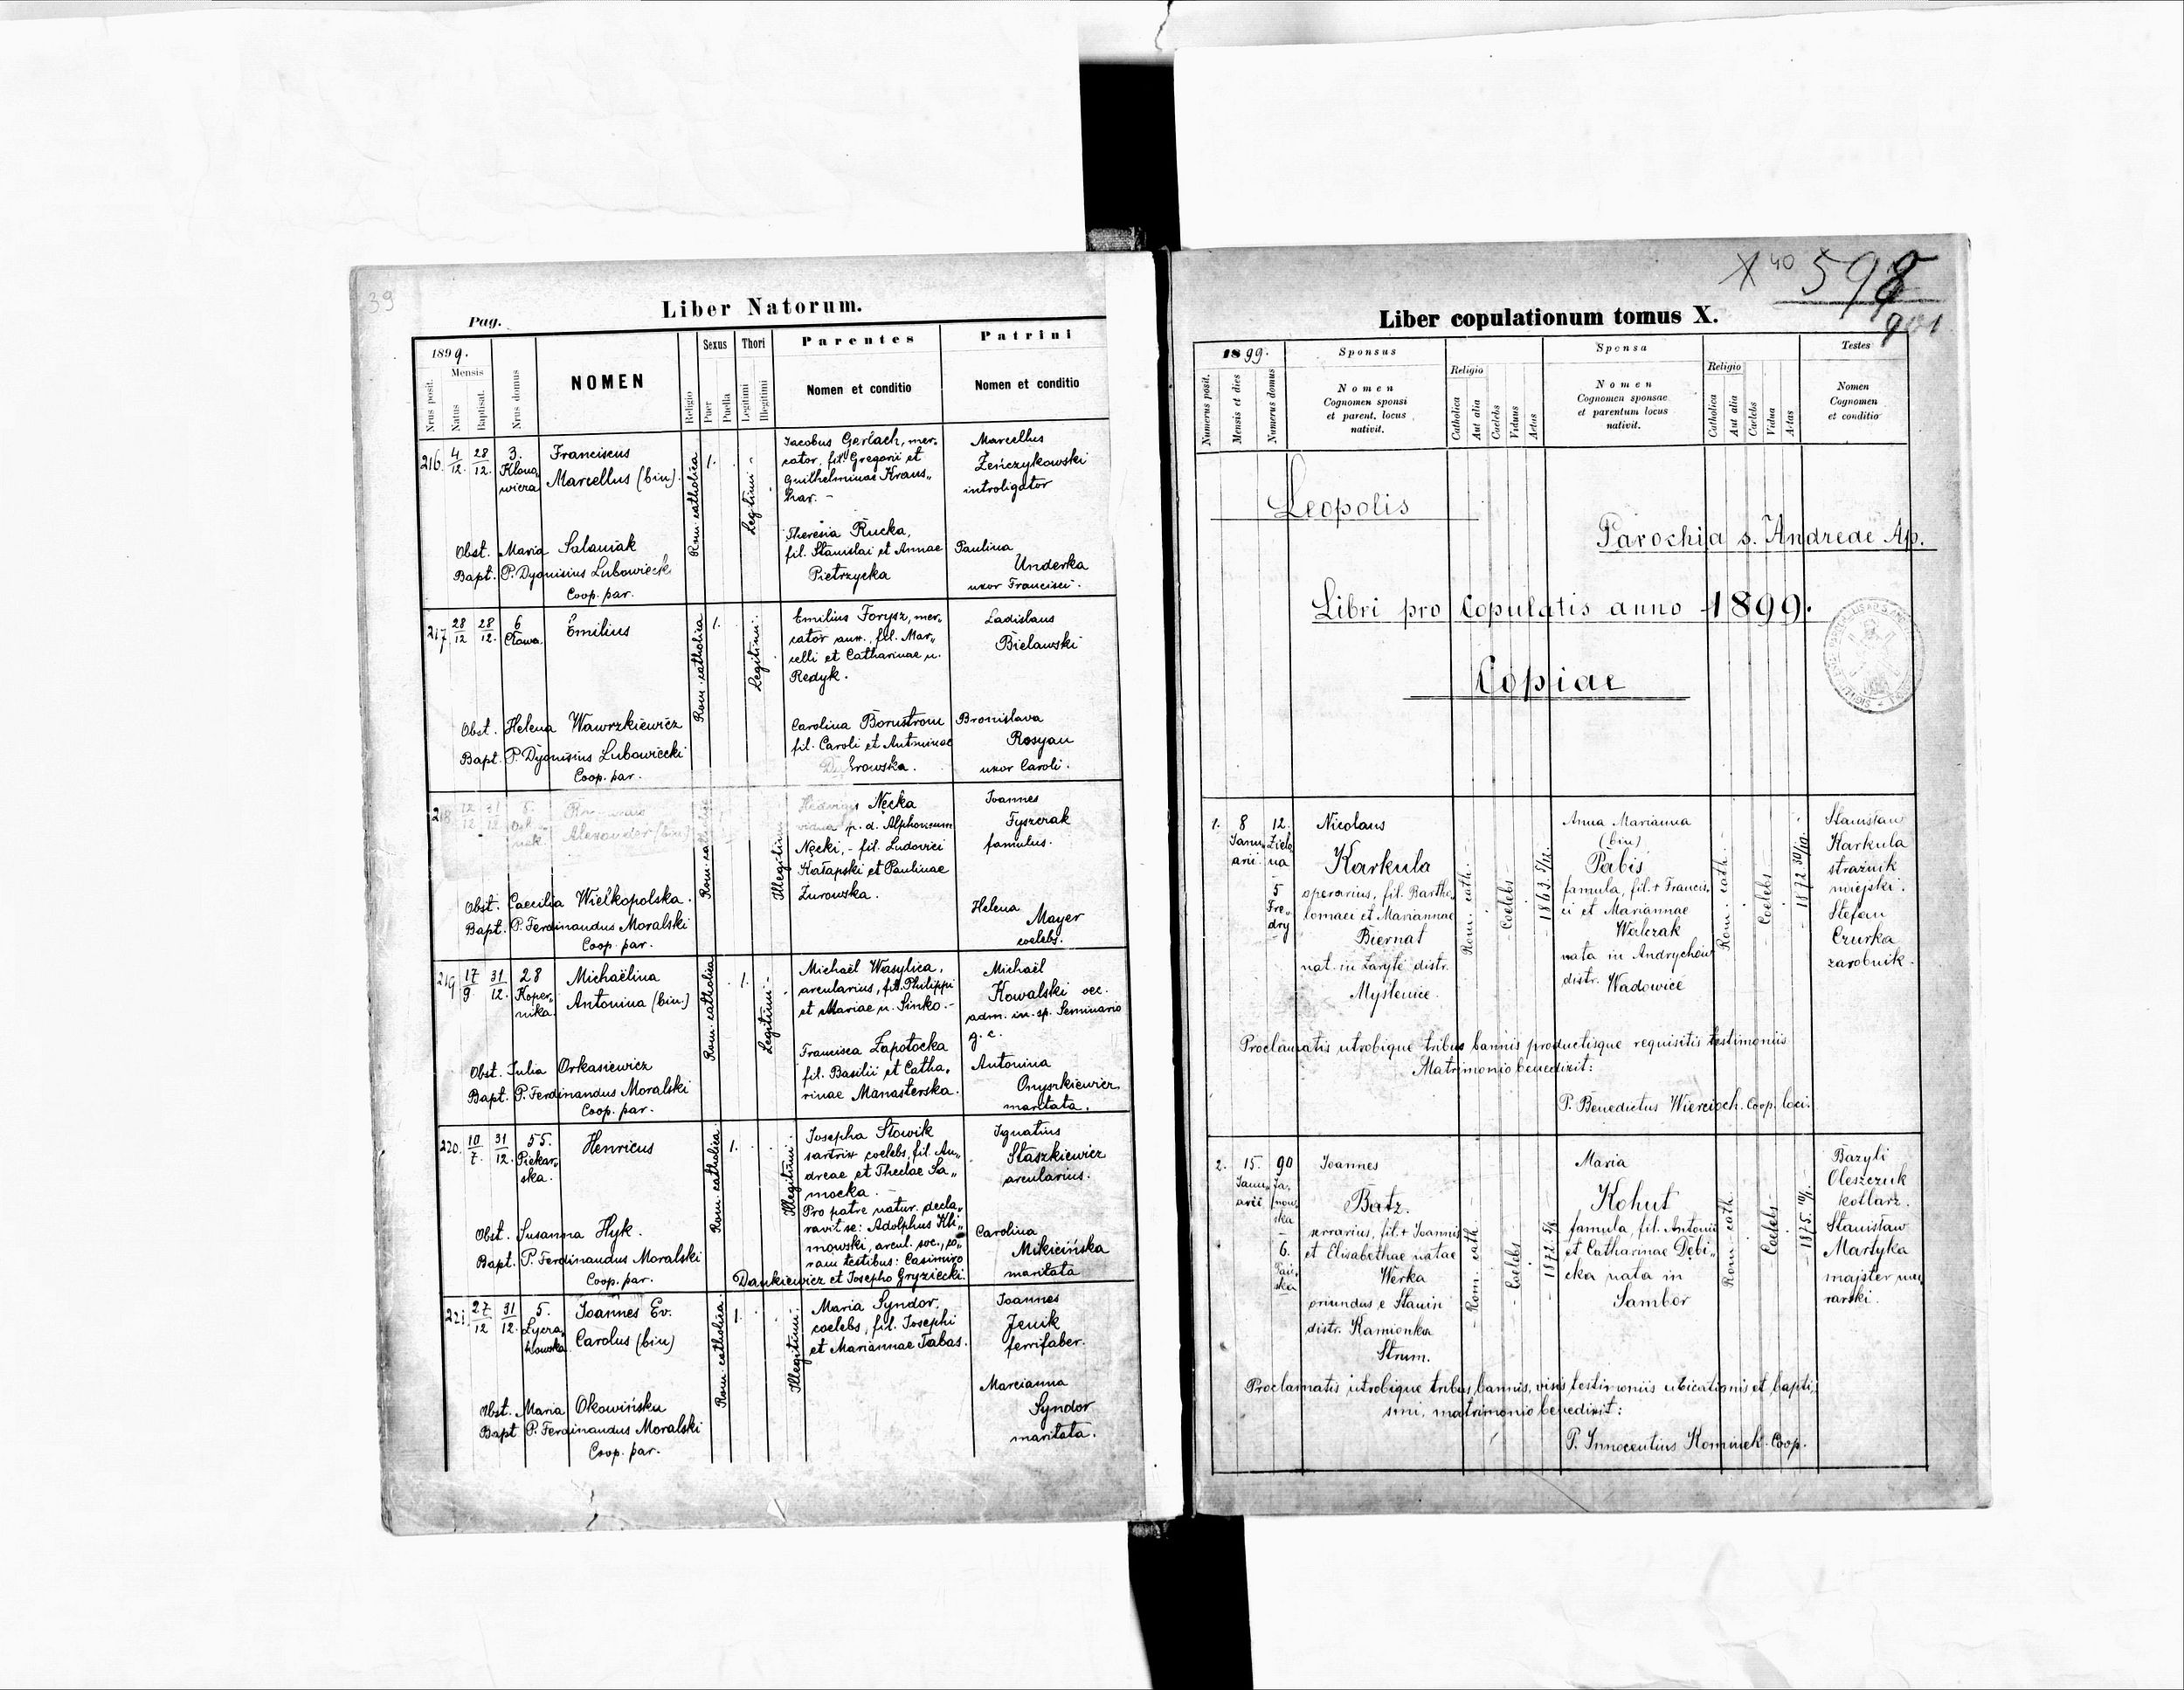 39
Liber Natorum.
Pag.
1899.
Mensis
Nrus posit.
Natus
Baptisat.
Nrus domus
NOMEN
Religio
Sexus
Puer
Puella
Thori
Legitimi
Illegitimi
Parentes
Nomen et conditio
Patrini
Nomen et conditio
216.
4/12.
28/12.
3.
Klono„
wiera
Franciscus
Marcellus (bin).
Rom. catholica
1.
Legitimi
Jacobus Gerlach, mer„
cator, fil. Gregorii et
Guilhelminae Kraus„
har. -
Theresia Rucka,
fil. Stanislai et Annae
Pietrzycka
Marcellus
Żeńczykowski
introligator
Paulina
Underka
uxor Francisci.
Obst. Maria Salaniak
Bapt. P. Dyonisius Lubowiecki
Coop. par.
217.
28/12
28/12.
6
Cłowa.
Emilius
Rom. catholica
1.
Legitimi
Emilius Forysz, mer„
cator aux., fil. Mar„
celli et Catharinae n.
Redyk.
Carolina Bornstrom
fil. Caroli et Antoninae
Ladislaus
Bielawski
Bronislava
Rosyan
uxor Caroli.
Obst. Helena Wawrzkiewicz
Bapt. P. Dyonisius Lubowiecki
Coop. par.
218.
12/12
31/12.
5.
Alexander (bin)
Rom. catholica
Illegitimi
Hedvigis Nęcka
vidua p. d. Alphonsum
Nęcki, - fil. Ludovici
Kałapski et Paulinae
Żurowska.
Joannes
Fyszerak
famulus.
Helena
Mayer
coelebs.
Obst. Caecilia Wielkopolska.
Bapt. P. Ferdinandus Moralski
Coop. par.
219.
17/9
31/12.
28
Koper„
nika.
Michaëlina
Antonina (bin.)
Rom. catholica
1.
Legitimi
Michaël Wasylica,
arcularius, fil. Philippi
et Mariae n. Sinko. -
Francisca Zapotocka
fil. Basilii et Catha„
rinae Manasterska.
Michaël
Kowalski oec.
adm. in sp. Seminario
g. c.
Antonina
Onyszkiewicz,
maritata.
Obst. Julia Orkasiewicz
Bapt. P. Ferdinandus Moralski
Coop. par.
220.
10/7.
31/12.
55.
Piekar„
ska.
Henricus
Rom. catholica
1.
Illegitimi
Josepha Słowik
sartrix coelebs, fil. An„
dreae et Theclae Sa„
mocka. -
Pro patre natur. decla„
ravit se: Adolphus Kli„
mowski, arcul. soc., co„
ram testibus: Casimiro
Dankiewicz et Josepho Gryziecki.
Ignatius
Staszkiewicz
arcularius.
Carolina
Mikicińska
maritata
Obst. Susanna Hyk.
Bapt. P. Ferdinandus Moralski
Coop. par.
221.
27/12
31/12.
5.
Łycza„
kowska
Joannes Ev.
Carolus (bin)
Rom. catholica
1.
Illegitimi
Maria Syndor,
coelebs, fil. Josephi
et Mariannae Tabas.
Joannes
Jenik
ferrifaber.
Marcianna
Syndor
maritata.
Obst. Maria Okowińska
Bapt. P. Ferdinandus Moralski
Coop. par.
X 40 598
901
Liber copulationum tomus X.
1899.
Numerus posit.
Mensis et dies
Numerus domus
Sponsus
Nomen
Cognomen sponsi
et parent. locus
nativit.
Religio
Catholica
Aut alia
Caelebs
Viduus
Aetas
Sponsa
Nomen
Cognomen sponsae
et parentum locus
nativit.
Religio
Catholica
Aut alia
Caelebs
Vidua
Aetas
Testes
Nomen
Cognomen
et conditio
Leopolis
Parochia s. Andreae Ap.
Libri pro Copulatis anno 1899.
Copiae
1.
8
Janu„
arii
12.
Zielo„
na
5
Fre„
dry
Nicolaus
Karkula
operarius, fil. Bartho„
lomaei et Mariannae
Biernat
nat. in Zaryte distr.
Myślenice.
Rom. cath.
Coelebs
1863 5/12.
Anna Marianna
(bin)
Pabis
famula, fil. + Francis„
ci et Mariannae
Walczak
nata in Andrychów
distr. Wadowice
Rom. cath.
Coelebs
1872 30/10.
Stanisław
Karkula
strażnik
miejski.
Stefan
Czurka
zarobnik.
Proclamatis utrobique tribus bannis productisque requisitis testimoniis
Matrimonio benedixit:
P. Benedictus Wiercioch. Coop. loci.
2.
15.
Janu„
arii
90
Ja„
now„
ska
6.
Joannes
Batz.
serrarius, fil. + Joannis
et Elisabethae natae
Werka
oriundus e Stanin
distr. Kamionka
Strum.
Rom. cath.
Coelebs
1872 5/2
Maria
Kohut
famula, fil. Antonii
et Catharinae Dębi„
cka nata in
Sambor
Rom. cath.
Coelebs
1875.
Bazyli
Oleszczuk
kotlarz.
Stanisław
Martyka
majster mu„
rarski.
Proclamatis utrobique tribus bannis, visis testimoniis ubicationis et bapti„
smi, matrimonio benedixit:
P. Innocentius Kominek. Coop.